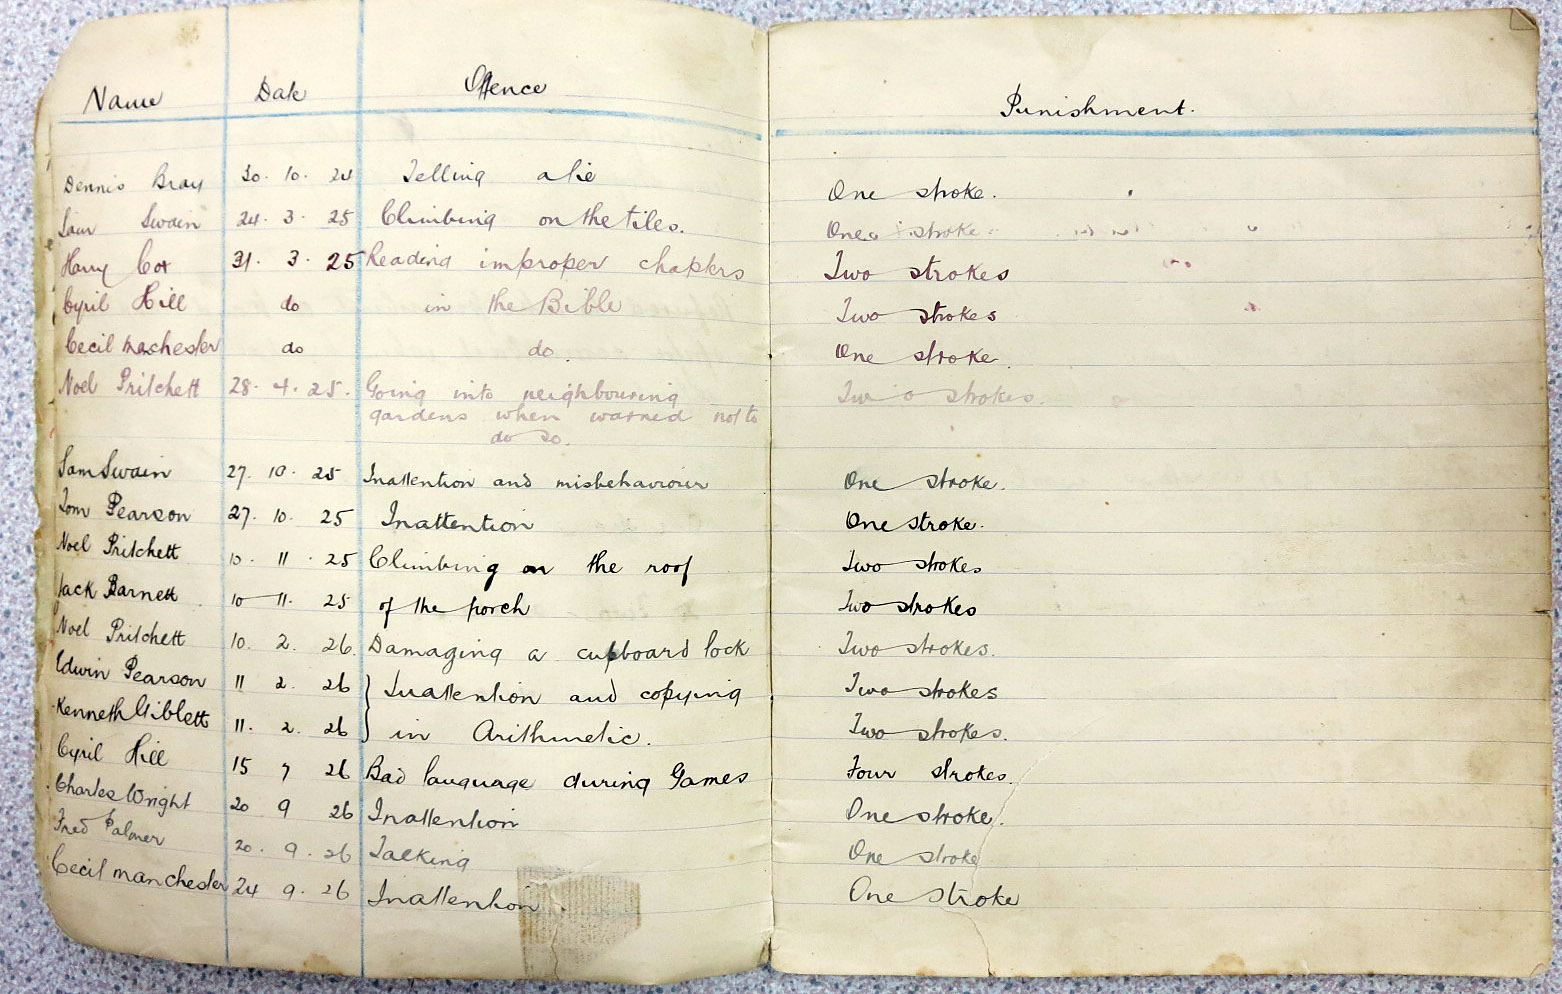 Name Date Offence Punishment.
Dennis Bray 30. 10. 24 Telling a lie One stroke.
Sam Swain 24. 3. 25 Climbing on the tiles. One stroke.
Harry Cox 31. 3. 25 Reading improper chapters Two strokes
Cyril Hill do in the Bible Two strokes
Cecil Manchester do do. One stroke.
Noel Pritchett 28. 4. 25. Going into neighbouring Two strokes.
gardens when warned not to
do so.
Sam Swain 27. 10 25 Inattention and misbehaviour One stroke.
Tom Pearson 27. 10. 25 Inattention One stroke.
Noel Pritchett 10. 11. 25 Climbing on the roof Two strokes
Jack Barnett 10 11. 25 of the porch Two strokes
Noel Pritchett 10. 2. 26. Damaging a cupboard lock Two strokes.
Edwin Pearson 11 2. 26 } Inattention and copying Two strokes
Kenneth Giblett 11. 2. 26 } in Arithmetic. Two strokes.
Cyril Hill 15 7 26 Bad language during Games Four strokes.
Charles Wright 20 9 26 Inattention One stroke.
Fred Palmer 20. 9. 26 Talking One stroke
Cecil Manchester 24 9. 26 Inattention. One stroke